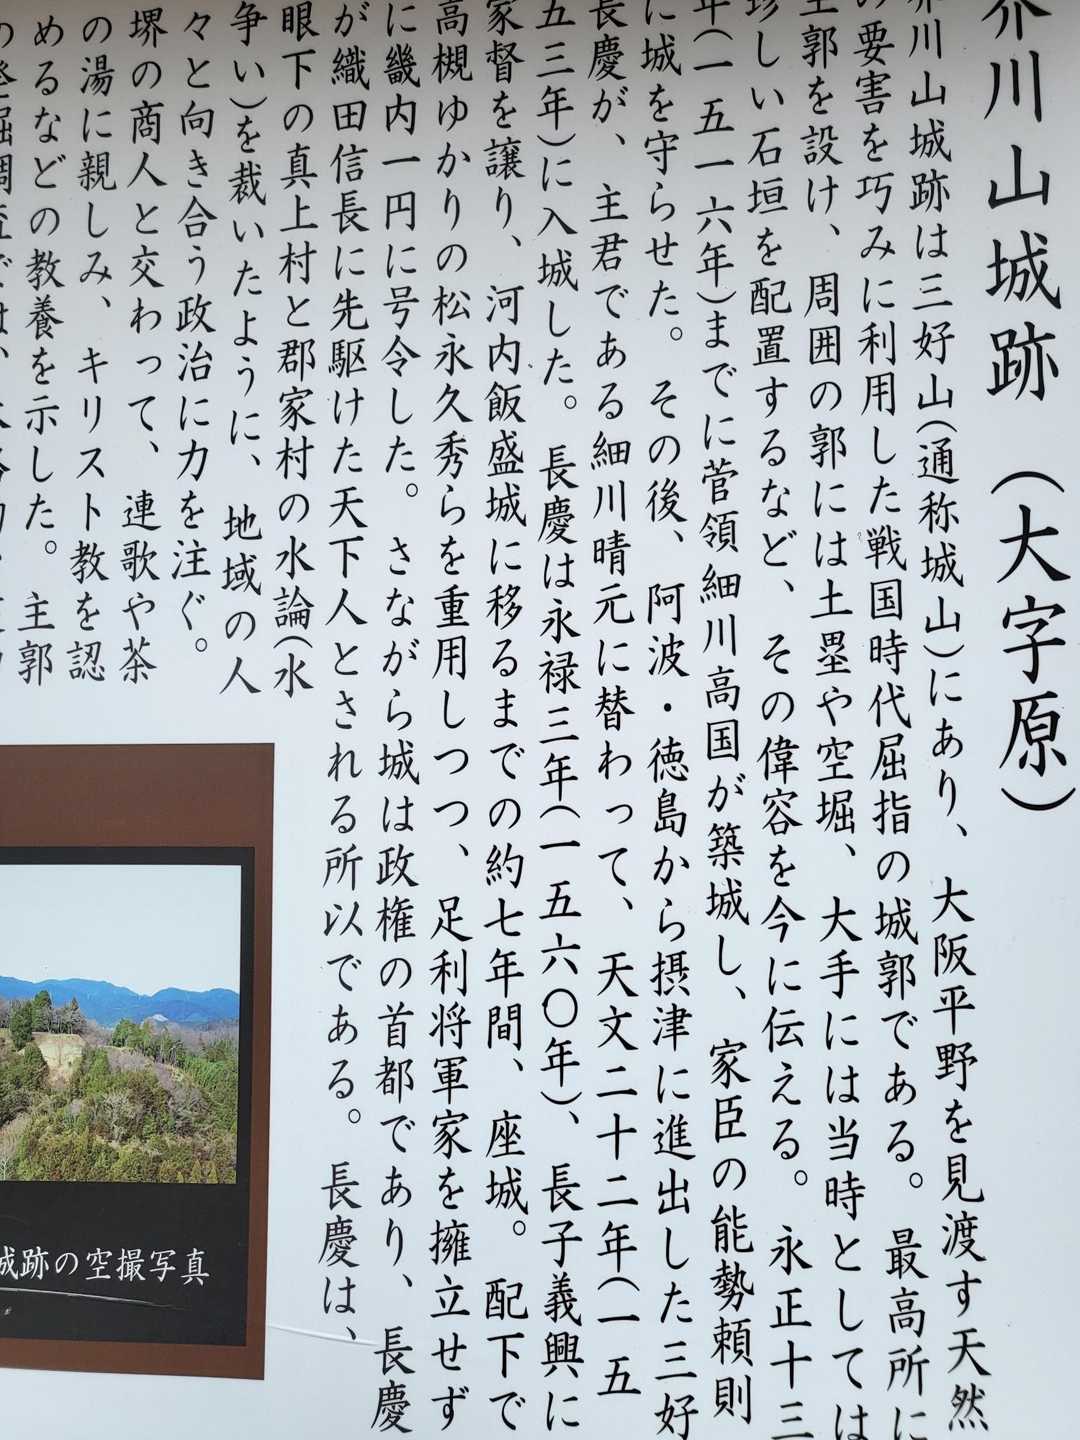 芥川山城跡（大字原）
芥川山城跡は三好山（通称城山）にあり、大阪平野を見渡す天然
の要害を巧みに利用した戦国時代屈指の城郭である。最高所に
主郭を設け、周囲の郭には土塁や空堀、大手には当時としては
珍しい石垣を配置するなど、その偉容を今に伝える。永正十三
年（一五一六年）までに菅領細川高国が築城し、家臣の能勢頼則
に城を守らせた。その後、阿波・徳島から摂津に進出した三好
長慶が、主君である細川晴元に替わって、天文二十二年（一五
五三年）に入城した。長慶は永禄三年（一五六〇年）、長子義興に
家督を譲り、河内飯盛城に移るまでの約七年間、座城。配下で
高槻ゆかりの松永久秀らを重用しつつ、足利将軍家を擁立せず
に畿内一円に号令した。さながら城は政権の首都であり、長慶
が織田信長に先駆けた天下人とされる所以である。長慶は、
眼下の真上村と郡家村の水論（水
争い）を裁いたように、地域の人
々と向き合う政治に力を注ぐ。
堺の商人と交わって、連歌や茶
の湯に親しみ、キリスト教を認
めるなどの教養を示した。主郭
の発掘調査では、
城跡の空撮写真